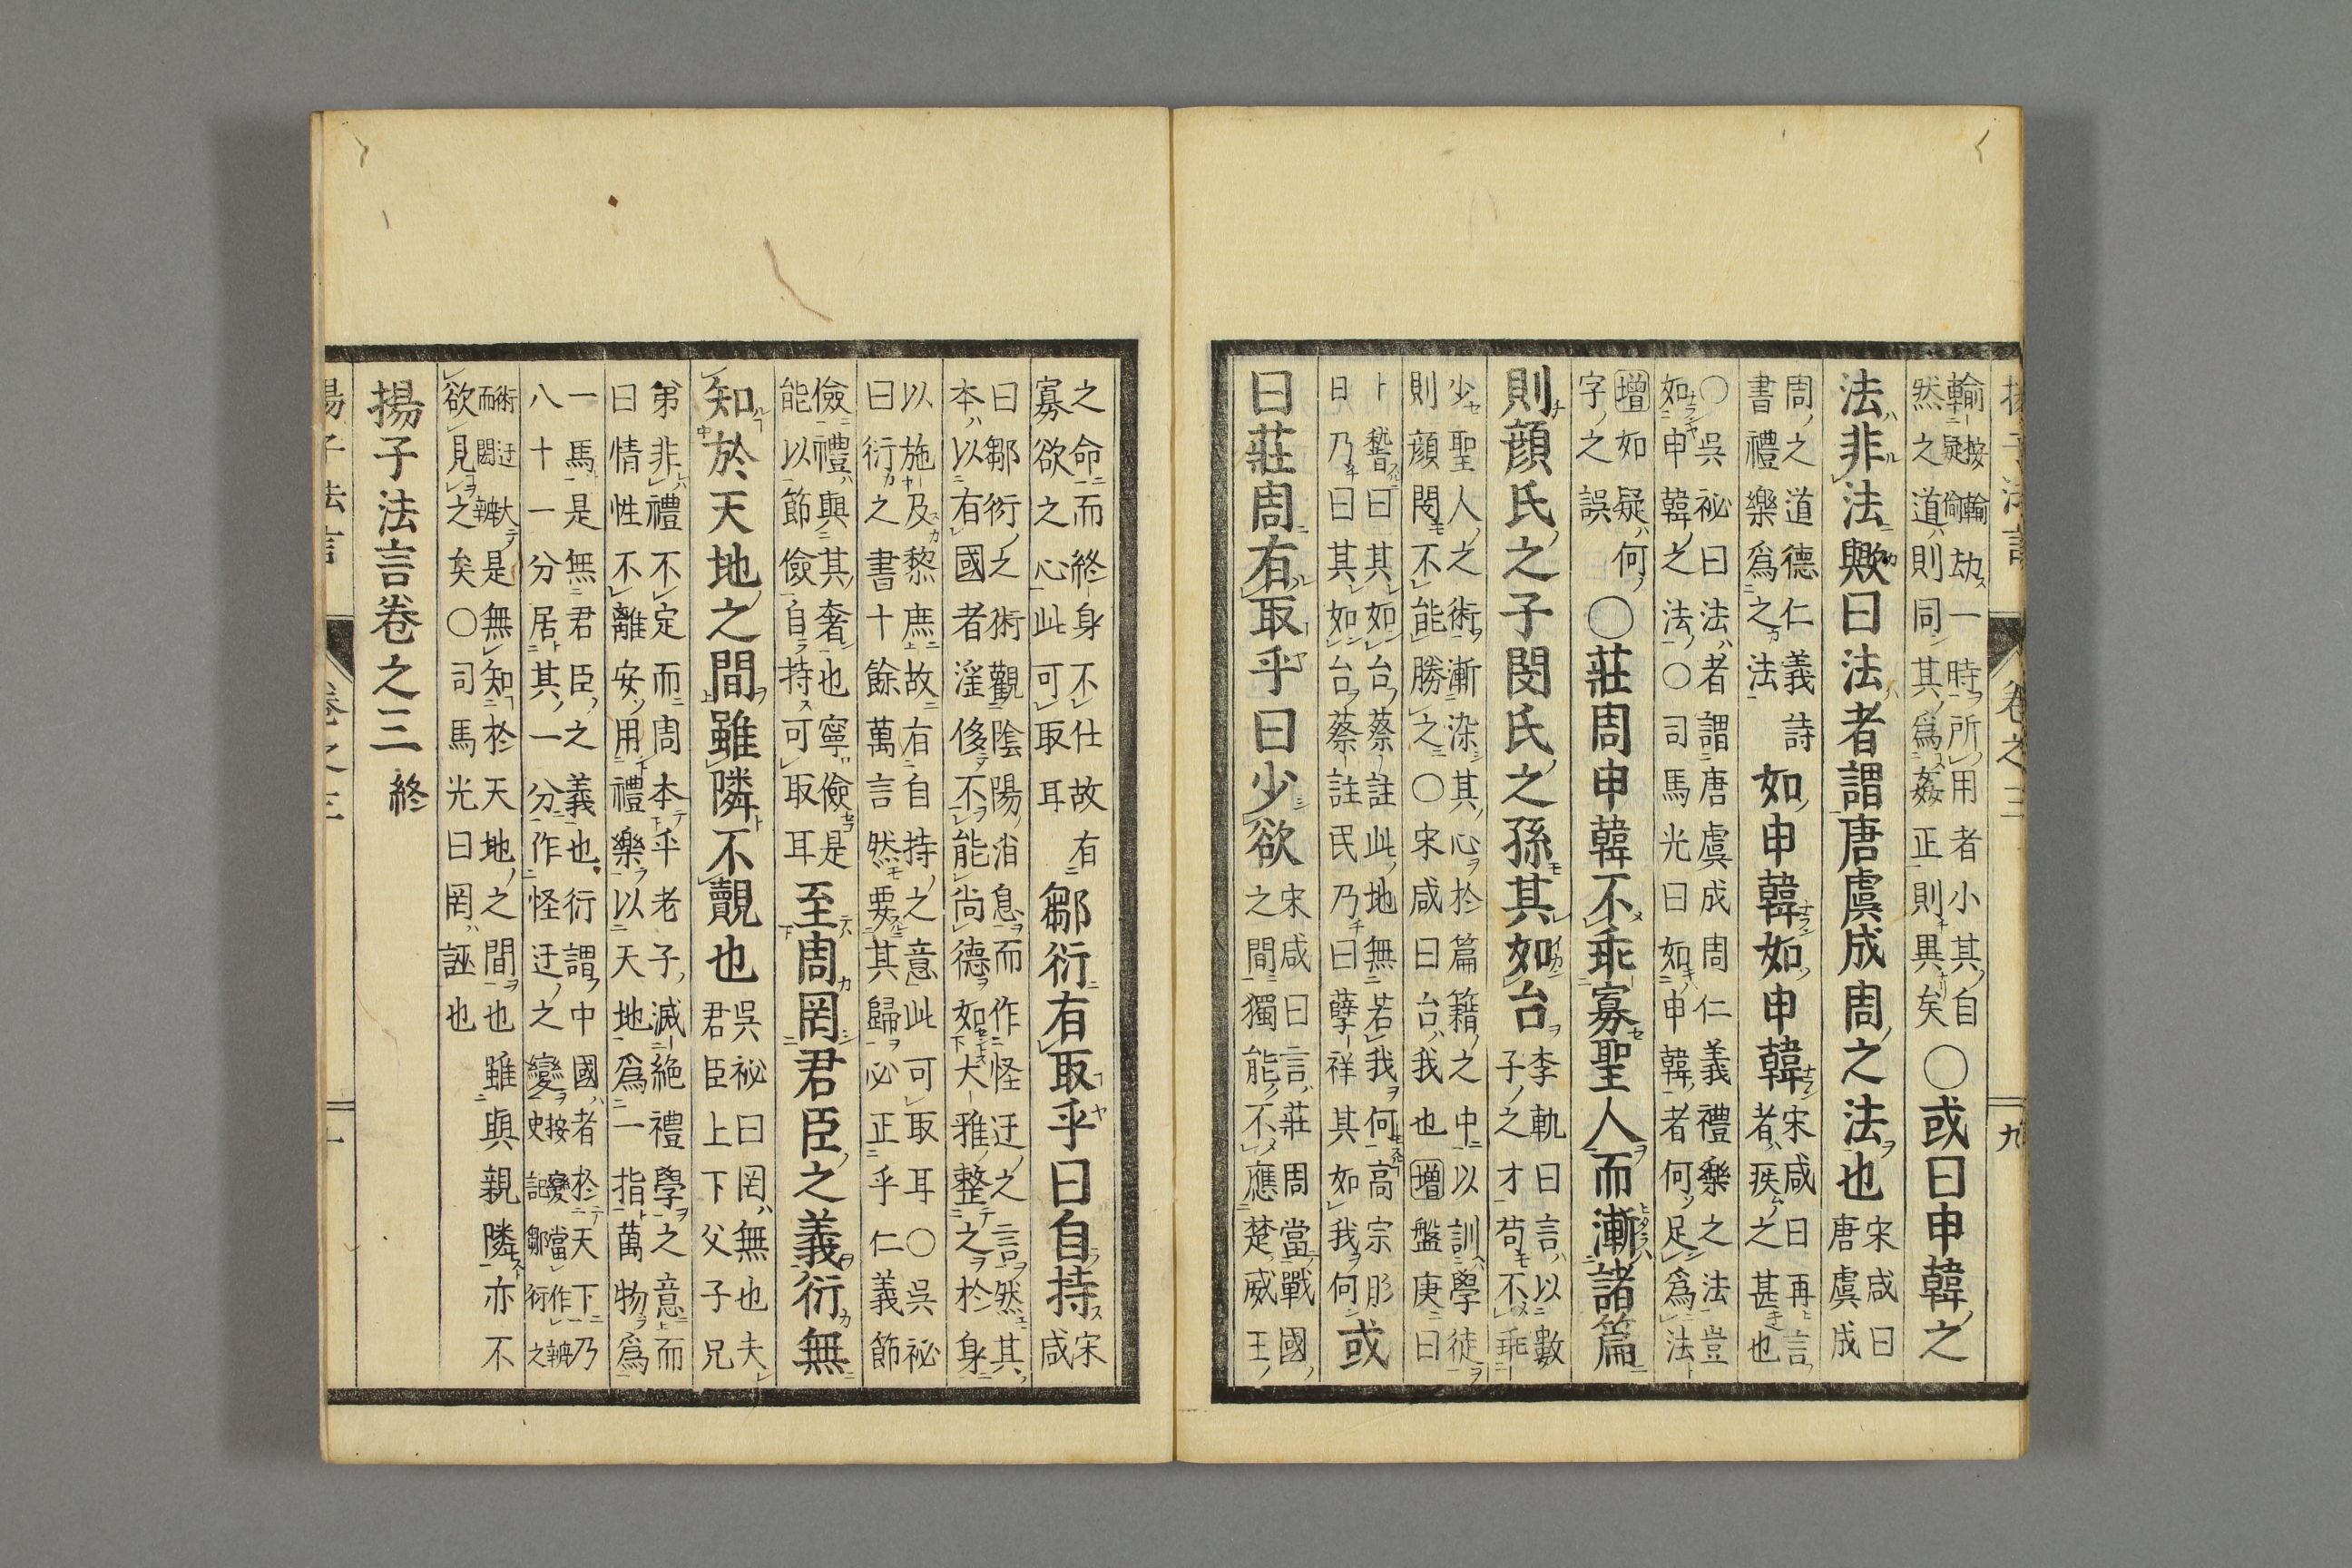 揚子法言 卷之三 九
輸按輸疑偷劫一時所用者小其自
然之道則同其爲姦正則異矣
○或曰申韓之
法非法歟曰法者謂唐虞成周之法也
宋咸曰
唐虞成
周之道德仁義詩
書禮樂爲之法
如申韓如申韓
宋咸曰再言
者疾之甚也
○吳祕曰法者謂唐虞成周仁義禮樂之法豈
如申韓之法○司馬光曰如申韓者何足爲法
增如疑何
字之誤
○莊周申韓不乖寡聖人而漸諸篇
則顔氏之子閔氏之孫其如台
李軌曰言以數
子之才苟不乖
少聖人之術漸染其心於篇籍之中以訓學徒
則顔閔不能勝之○宋咸曰台我也增盤庚曰
卜稽曰其如台蔡註此地無若我何高宗肜
日乃曰其如台蔡註民乃曰孽祥其如我何
或
曰莊周有取乎曰少欲
宋咸曰言莊周當戰國
之間獨能不應楚威王
之命而終身不仕故有
寡欲之心此可取耳
鄒衍有取乎曰自持
宋
咸
曰鄒衍之術觀陰陽消息而作怪迂之言然其
本以有國者淫侈不能尚德如大雅整之於身
以施及黎庶故有自持之意此可取耳○吳祕
曰衍之書十餘萬言然要其歸必正乎仁義節
儉禮與其奢也寧儉是
能以節儉自持可取耳
至周罔君臣之義衍無
知於天地之間雖隣不覿也
吳祕曰罔無也夫
君臣上下父子兄
弟非禮不定而周本乎老子滅絶禮學之意而
曰情性不離安用禮樂以天地爲一指萬物爲
一馬是無君臣之義也衍謂中國者於天下乃
八十一分居其一分作怪迂之變
按變當作辨
史記鄒衍之
術迂大
而閎辯
是無知於天地之間也雖與親隣亦不
欲見之矣○司馬光曰罔誣也
揚子法言卷之三 終